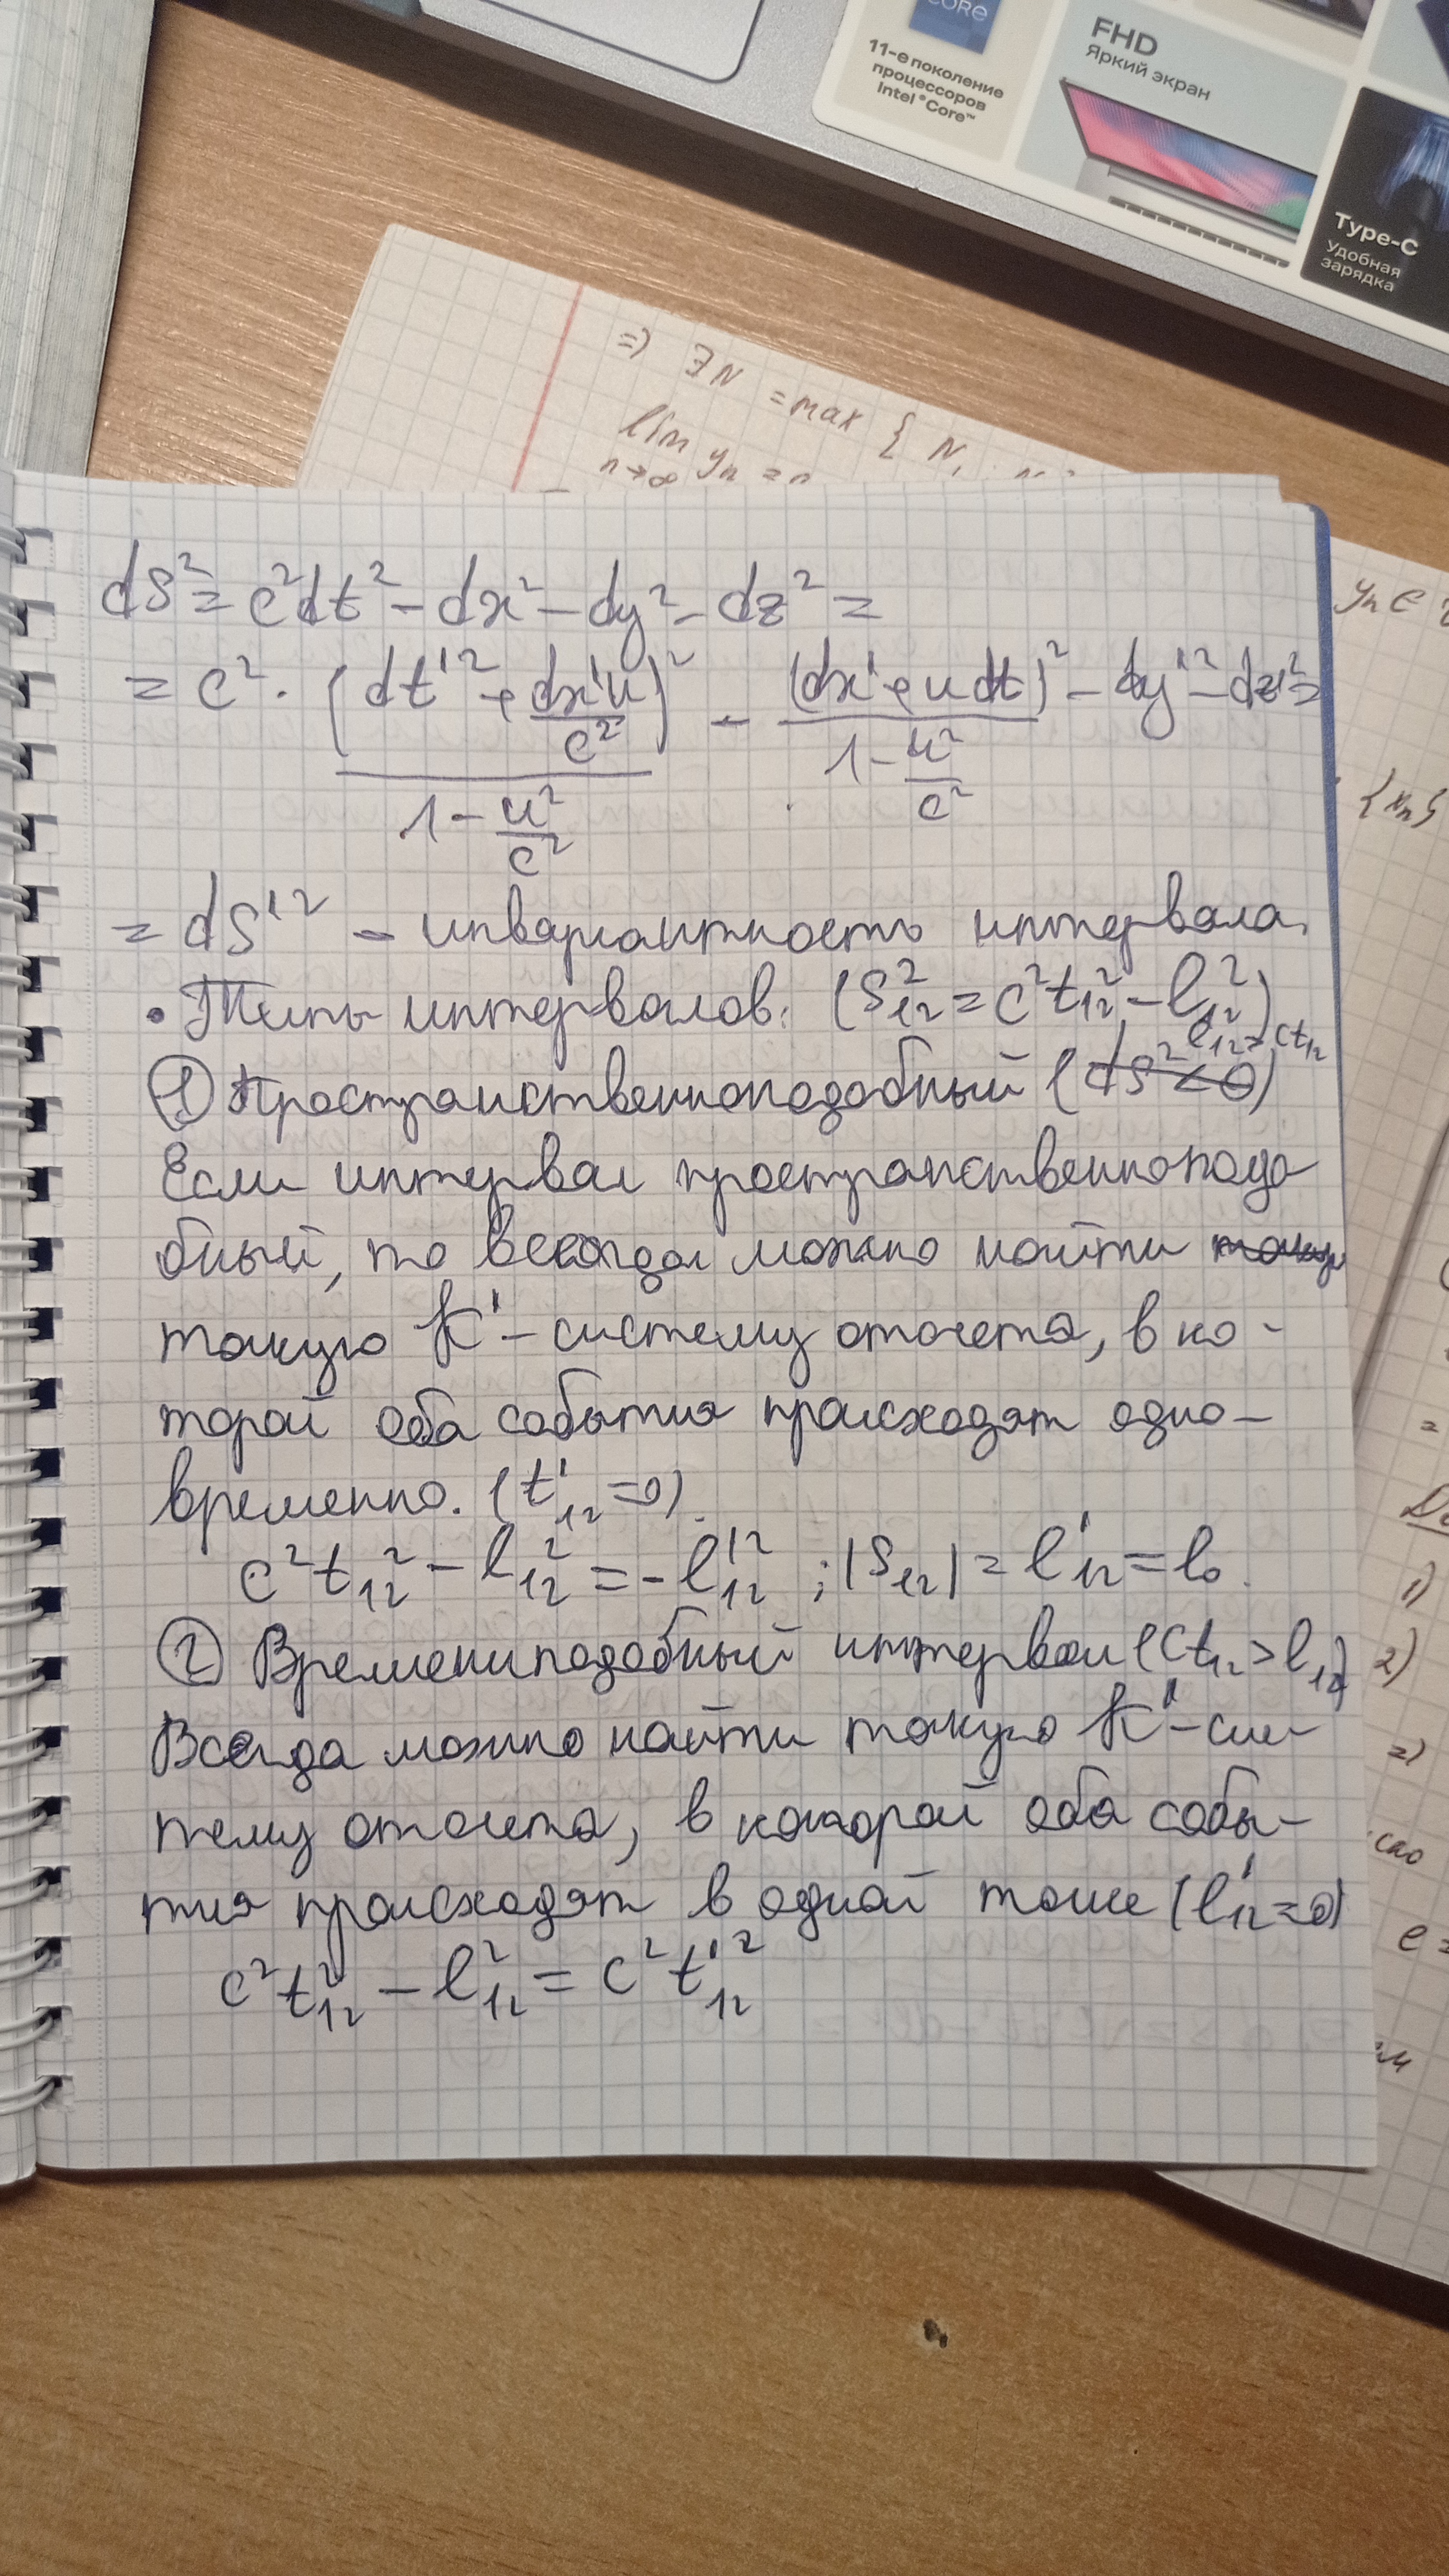 CORE
11-е поколение
процессоров
Intel® Core™
FHD
Яркий экран
Type-C
Удобная
зарядка
=> ∃N = max { N,
lim yn =
n→∞
yn ∈
{xn}
ds² = c²dt² - dx² - dy² - dz² =
= c² · (dt'² + dx'u/c²)² / (1 - u²/c²) - (dx' + udt)² / (1 - u²/c²) - dy'² - dz'² =
= ds'² - инвариантность интервала.
• Типы интервалов: (S₁₂² = c²t₁₂² - l₁₂²)
① Пространственноподобный (ds² < 0) l₁₂ > ct₁₂
Если интервал пространственноподо
бный, то всегда можно найти такую
такую K' - систему отсчета, в ко-
торой оба события происходят одно-
временно. (t'₁₂ = 0).
c²t₁₂² - l₁₂² = -l'₁₂² ; |S₁₂| = l'₁₂ = l₀.
② Времениподобный интервал (ct₁₂ > l₁₂)
Всегда можно найти такую K' - сис
тему отсчета, в которой оба собы-
тия происходят в одной точке (l'₁₂ = 0)
c²t₁₂² - l₁₂² = c²t'₁₂²
1)
2)